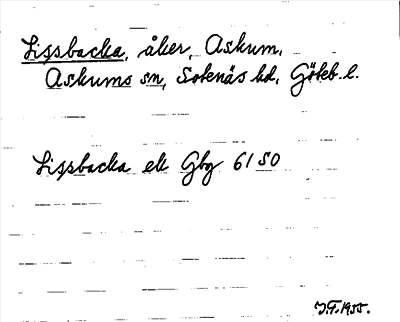 Lissbacka, åker, Askum,
Askums sn, Sotenäs hd, Göteb. l.
Lissbacka ek Gbg 61 SO
J.F. 1955.